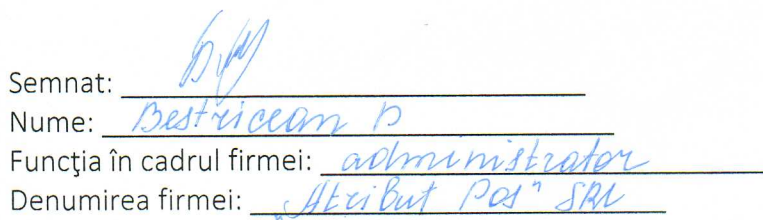 Semnat:
Nume: Bestricean D
Funcţia în cadrul firmei: administrator
Denumirea firmei: „Atribut Pos" SRL